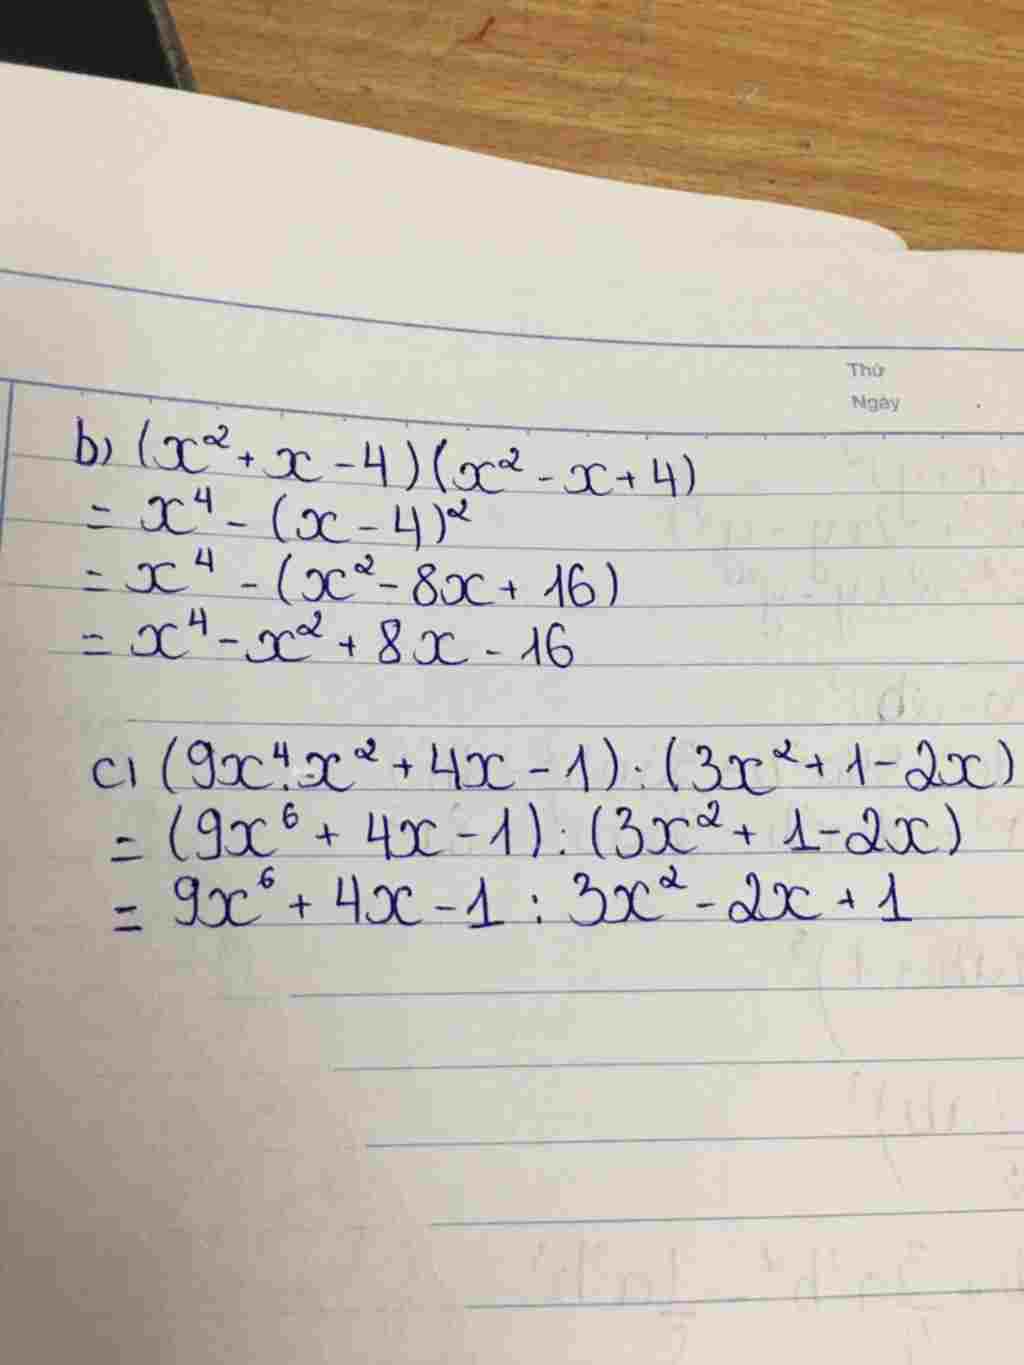 Thứ
Ngày
b) (x² + x - 4)(x² - x + 4)
= x⁴ - (x - 4)²
= x⁴ - (x² - 8x + 16)
= x⁴ - x² + 8x - 16
c) (9x⁴.x² + 4x - 1) : (3x² + 1 - 2x)
= (9x⁶ + 4x - 1) : (3x² + 1 - 2x)
= 9x⁶ + 4x - 1 : 3x² - 2x + 1